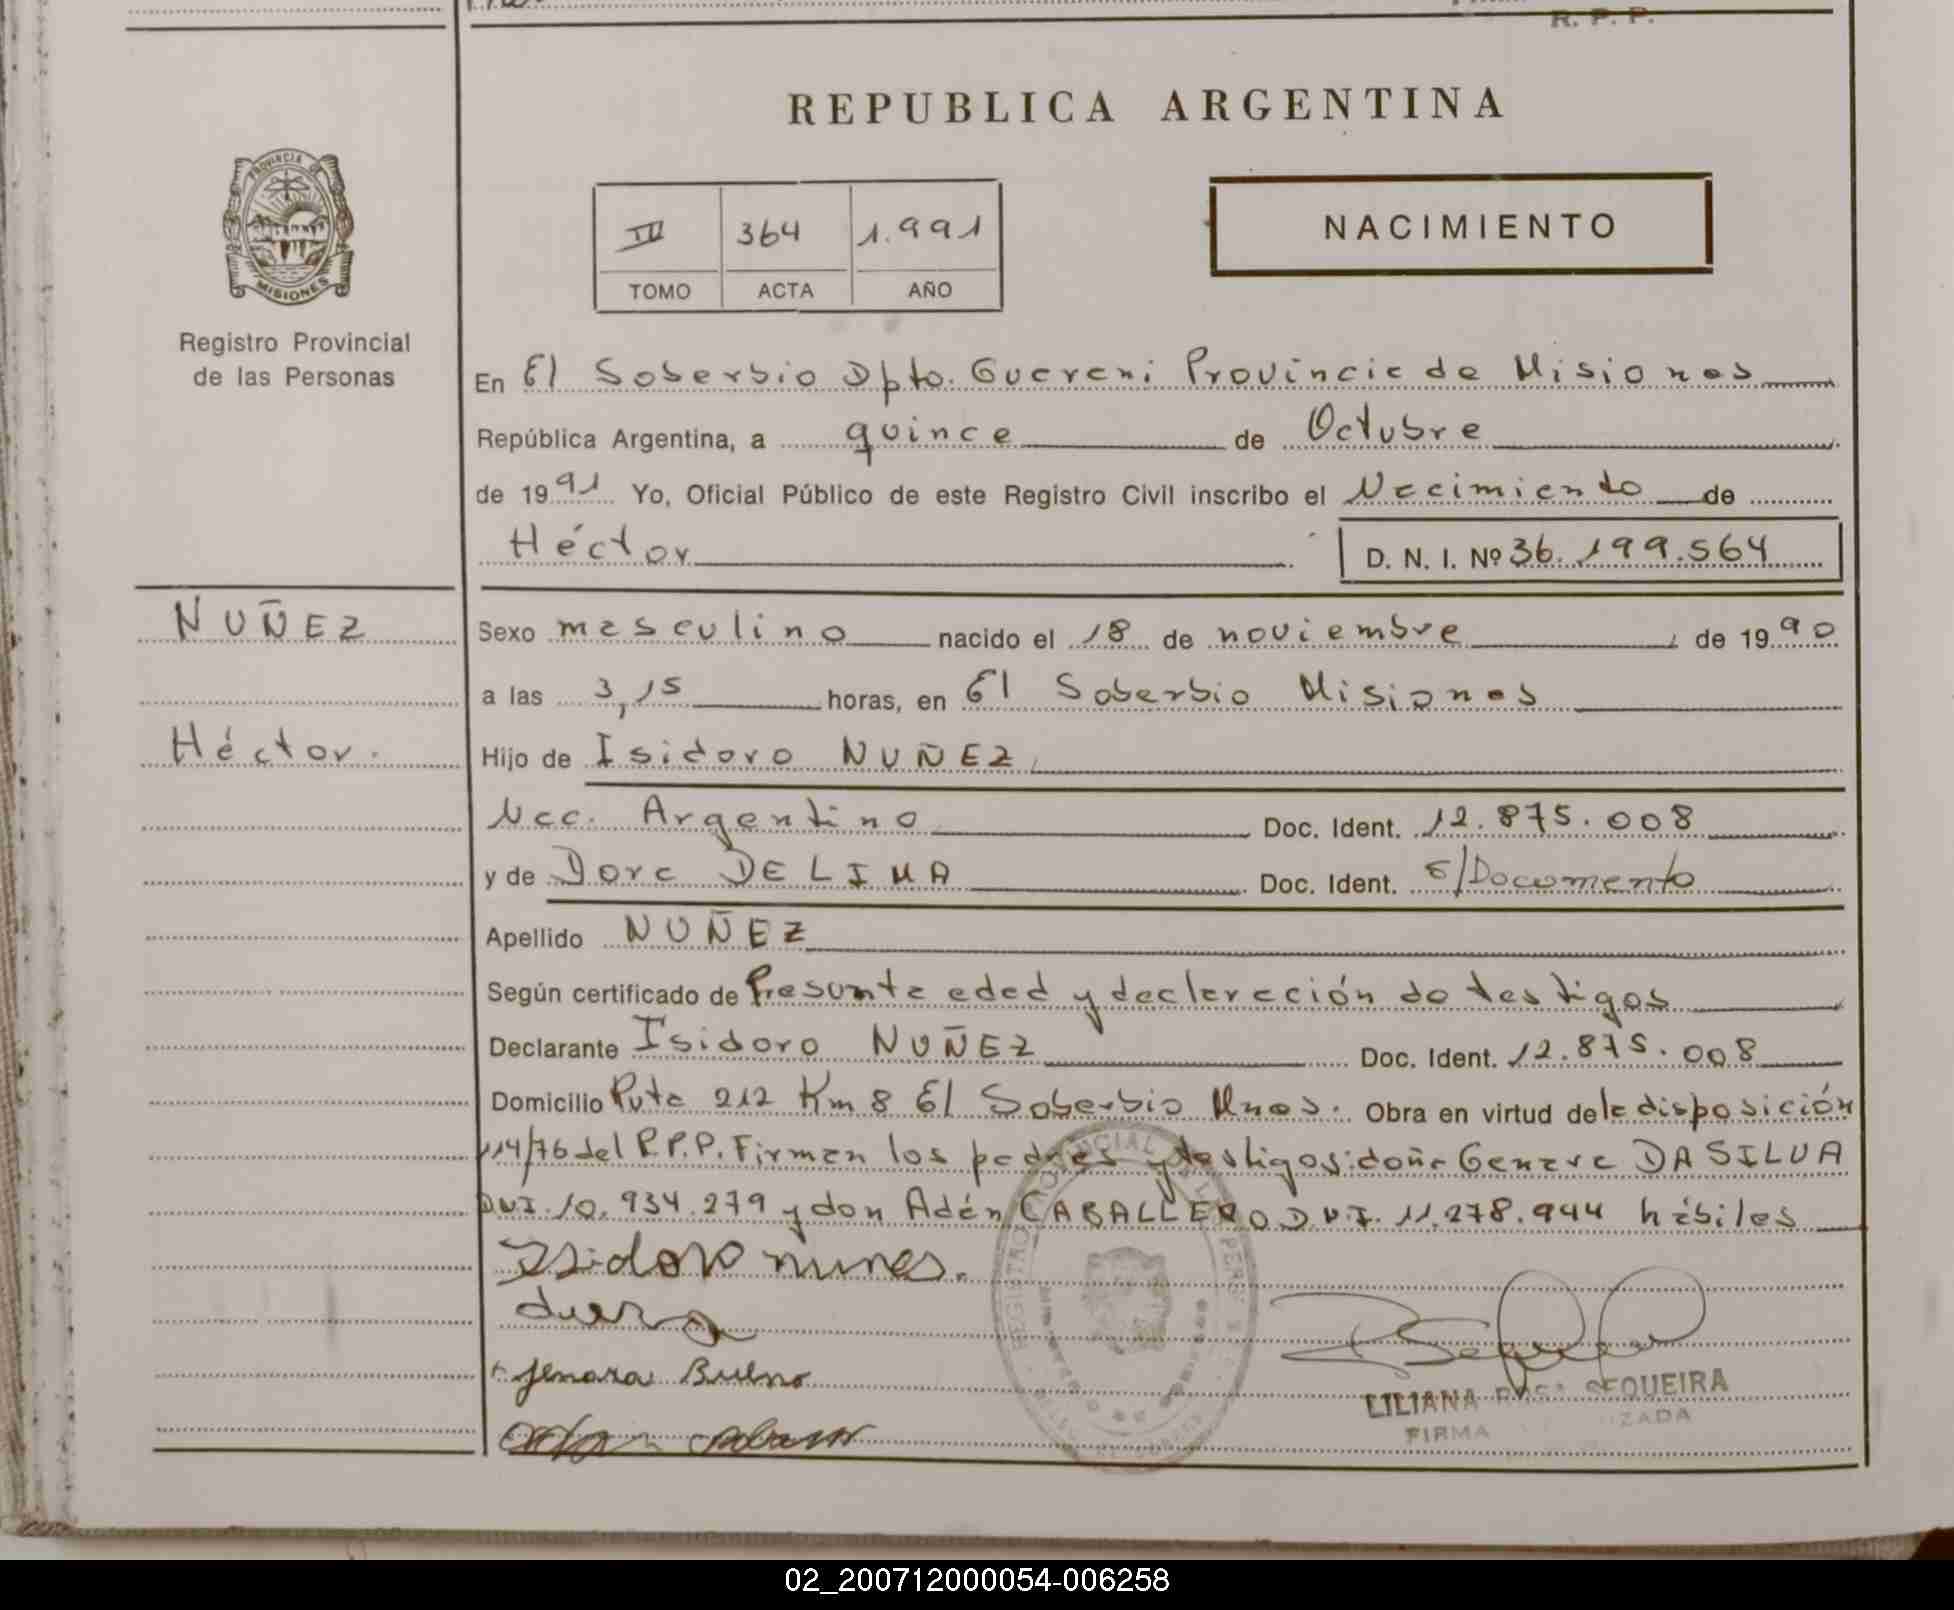 R. P. P.
REPUBLICA ARGENTINA
PROVINCIA DE
MISIONES
Registro Provincial
de las Personas
III 364 1.991
TOMO ACTA AÑO
NACIMIENTO
En El Soberbio Dpto. Guarani Provincia de Misiones
República Argentina, a quince de Octubre
de 1991 Yo, Oficial Público de este Registro Civil inscribo el Nacimiento de
Héctor D. N. I. Nº 36.199.564
NUÑEZ
Sexo masculino nacido el 18 de noviembre de 1990
a las 3,15 horas, en El Soberbio Misiones
Héctor.
Hijo de Isidoro NUÑEZ
Nac. Argentino Doc. Ident. 12.875.008
y de Dora DE LIMA Doc. Ident. s/Documento
Apellido NUÑEZ
Según certificado de Presunta edad y declaración de testigos
Declarante Isidoro NUÑEZ Doc. Ident. 12.875.008
Domicilio Ruta 212 Km 8 El Soberbio Mnes. Obra en virtud de la disposición
114/76 del R.P.P. Firman los padres y testigos: doña Genara DA SILVA
DNI. 10.934.279 y don Adán CABALLERO D.N.I. 11.278.944 hábiles
Isidoro nunes.
Jenara Bueno
LILIANA ROSA SEQUEIRA
FIRMA AUTORIZADA
02_200712000054-006258